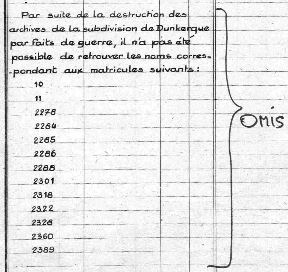 Par suite de la destruction des
archives de la subdivision de Dunkerque
par faits de guerre, il n'a pas été
possible de retrouver les noms corres-
-pondant aux matricules suivants :
10
11
2278
2284
2285
2286
2288
2301
2318
2322
2328
2360
2389
Omis